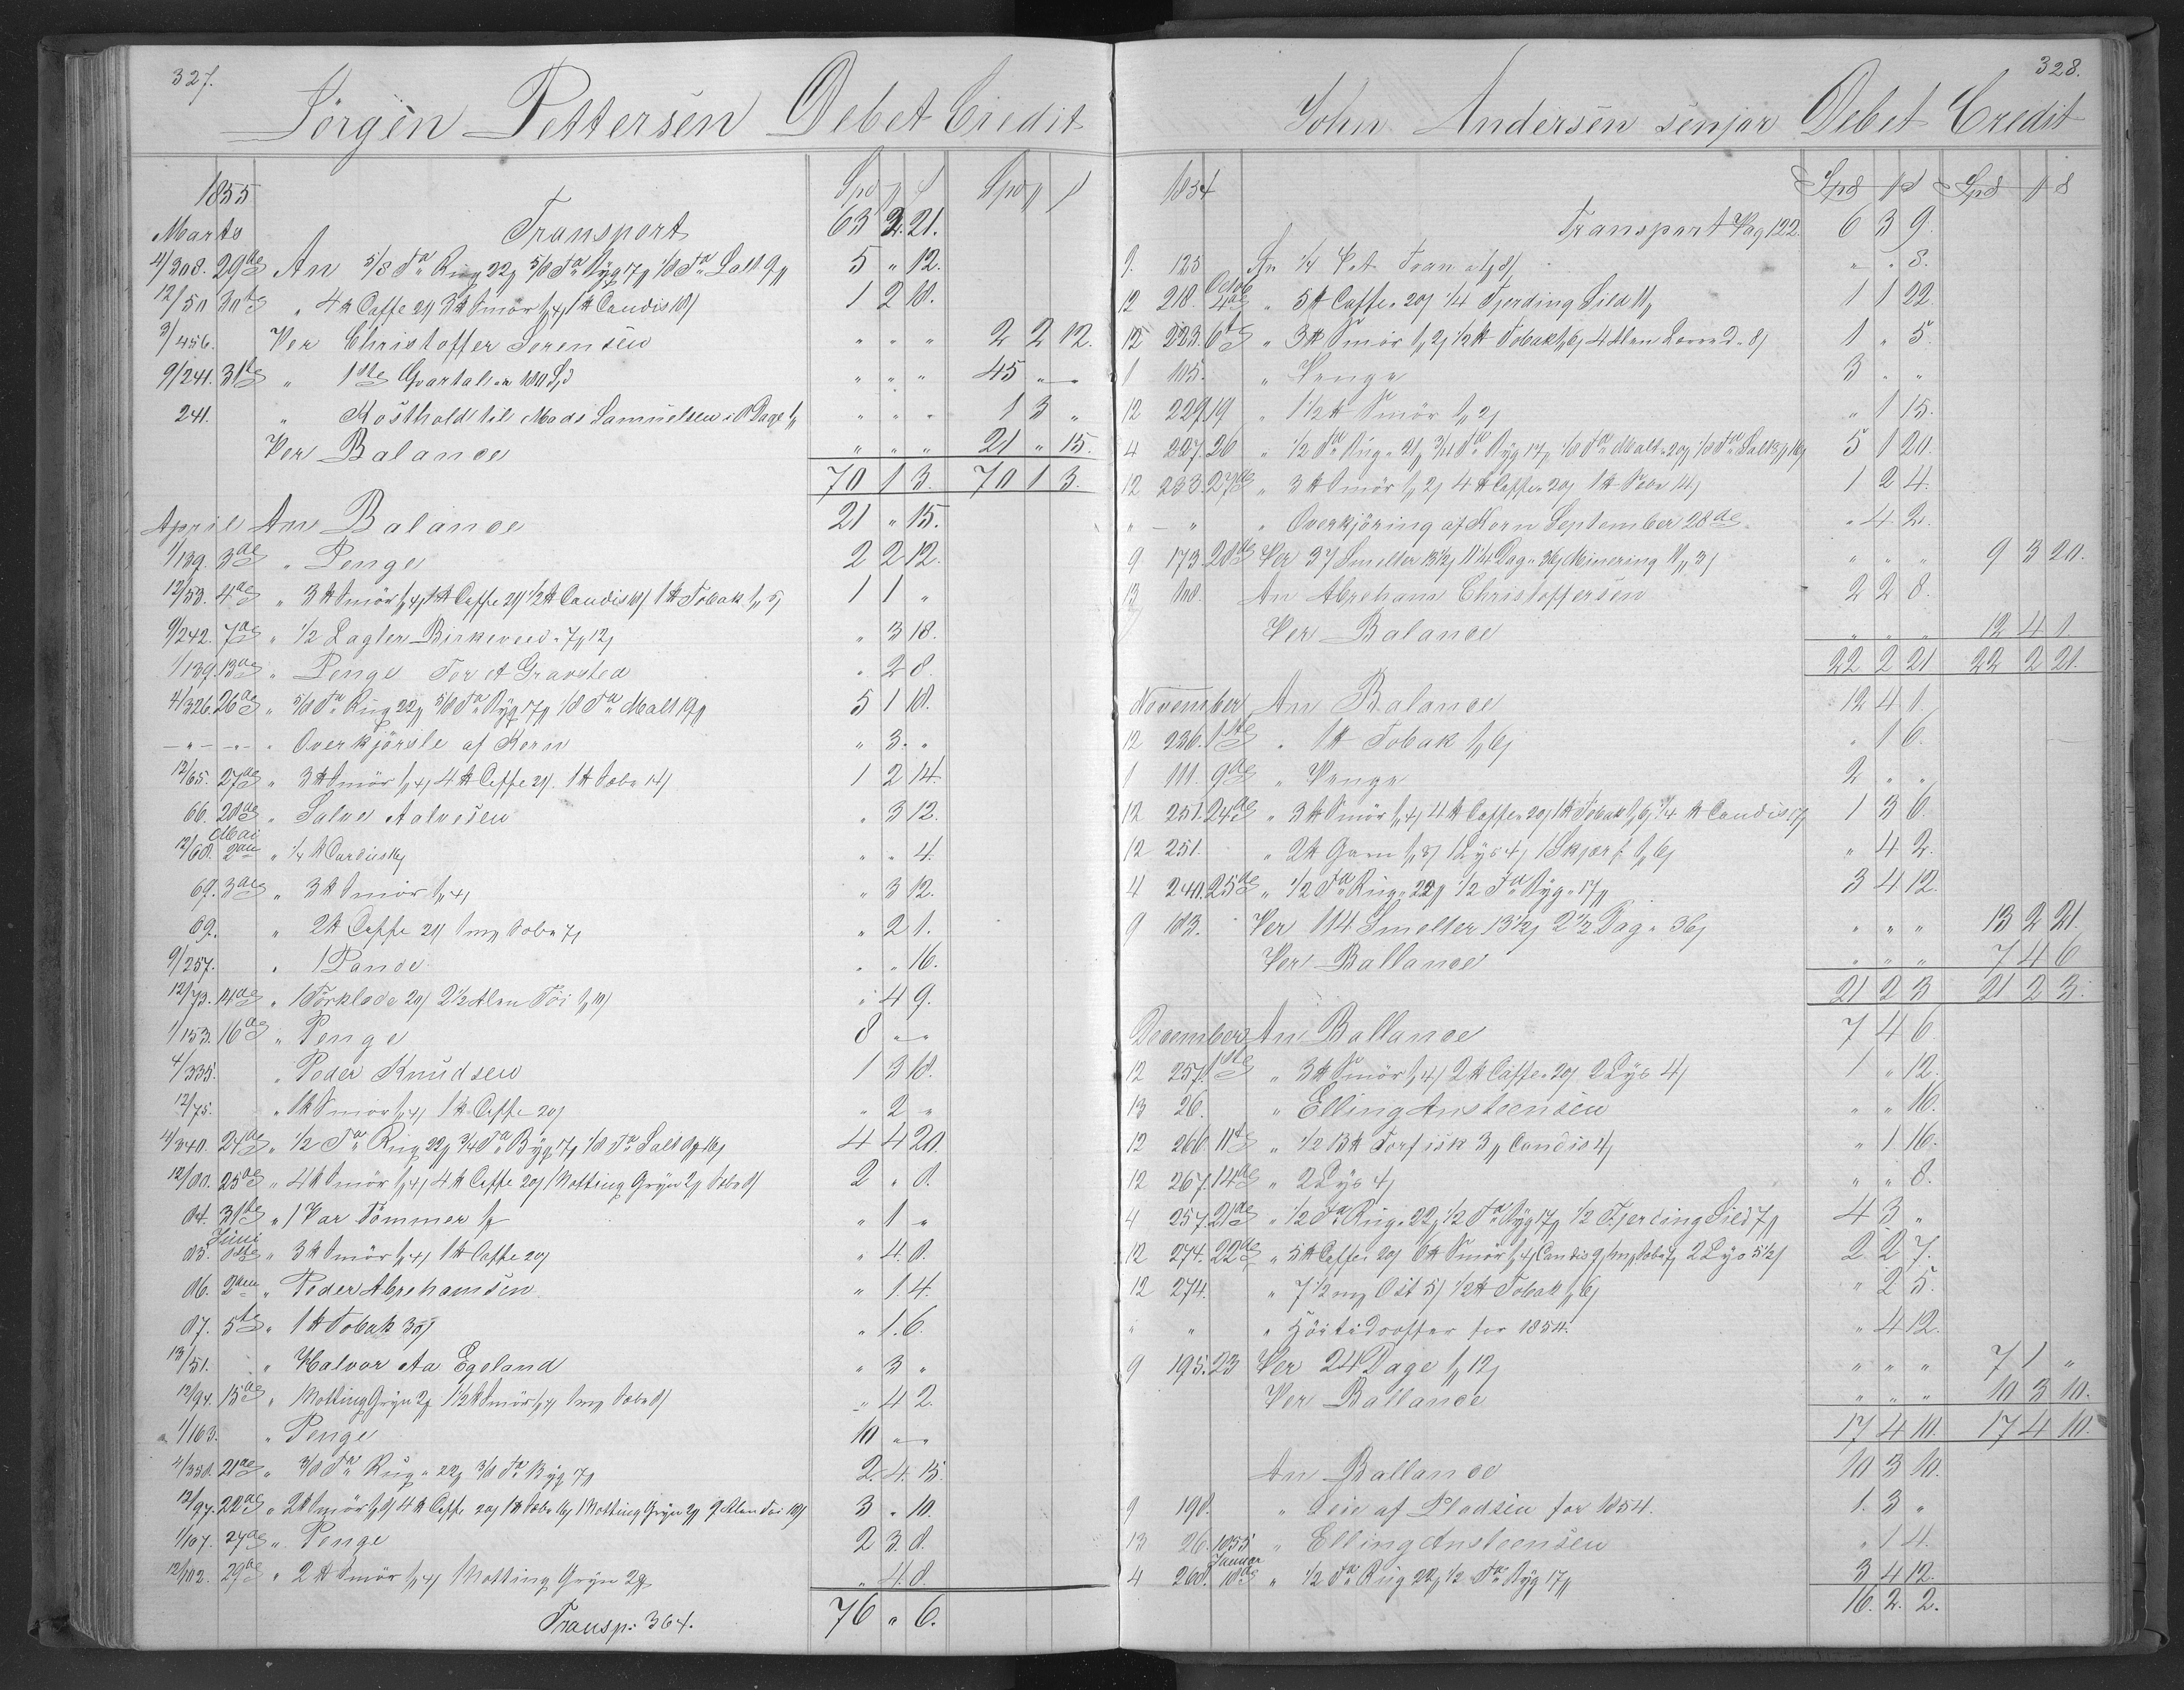 327.
Jörgen Pettersen Debet Credit
1855 Spd
Marts Transport 63 2. 21.
4/308. 29de An 5/8 Td Rug 22 5/8 Td Byg 17 1/8 Td Salt 9 5 " 12.
12/50 30te " 4 Caffe 21 3 Smör 1 4 1 Candis 18 1 2 18.
3/456. Per Christoffer Sörensen " " " 2 2 12.
9/241. 31te " 1ste Qvartal 180 Spd " " " 45 " "
241. " Kosthold til Mads Samuelsen i Dage " " " 1 3 "
Per Balance " " " 21 " 15.
70 1 3. 70 1 3.
April An Balance 21 " 15.
1/139. 3de " Penge 2 2 12.
12/53. 4de " 3 Smör 1 4 1 Caffe 21 1/2 Candis 18 1 Tobak 1 5 1 1 "
9/242. 7de " 1/2 Birkeveed 7 12 " 3 18.
1/139. 13de " Penge For et Gravsted " 2 8.
4/326. 26de " 5/8 Td Rug 22 5/8 Td Byg 17 1/8 Td Malt 19 5 1 18.
" " " Overkjörsle af Korn " 3. "
12/65. 27de " 3 Smör 1 4 4 Caffe 21 1 Sebe 14 1 2 14.
66. 28de " Salve Aalvesen " 3 12.
Mai
12/68. 2den " 1/4 16 " " 4.
69. 3de " 3 Smör 1 4 " 3 12.
69. " 2 Caffe 21 1 Sebe 7 " 2 1.
9/257. " 1 Pande " " 16.
12/73. 14de " 1 Förklæde 20 2 1/2 Alen Töi 1 10 " 4 9.
1/153. 16de " Penge 8 " "
4/335. " Peder Knudsen 1 3 18.
12/75. " 1 Smör 1 4 1 Caffe 20 " 2 "
4/340. 24de " 1/2 Td Rug 22 3/4 Td Byg 17 1/8 Td Salt 16 4 4 20.
12/80. 25de " 4 Smör 1 4 4 Caffe 20 1 Gryn 2 Sebe 8 2 " 8.
84. 31te " 1 Par Tömmer 1 " 1 "
Juni
85. 1ste " 3 Smör 1 4 1 Caffe 20 " 4. 8.
86. 2den " Peder Abrehamsen " 1 4.
87. 5te " 1 Tobak 30 " 1. 6.
13/51. " Halvor Aa Egeland " 3 "
12/94. 15de " Gryn 2 1 1/2 Smör 1 4 1 Sebe 8 " 4 2.
1/163. " Penge 10 " "
4/350. 21de " 3/8 Td Rug 22 3/8 Td Byg 17 2. 4. 15.
12/97. 22de " 2 Smör 4 Caffe 20 1 Sebe 16 1 Gryn 2 9 Alen Töi 10 3 " 10.
1/167. 24de " Penge 2 3. 8.
12/102. 29de " 2 Smör 1 4 1 Gryn 2 " 4. 8.
Transp: 364. 76 " 6.
328.
John Andersen senjor Debet Credit
1854 Spd Spd
Transport Pag 122. 6 3 9.
9. 123 An 1/4 Pot Tran 8 " " 8.
Octob
12 218. 4de " 5 Caffe 20 1/4 Fjerding Sild 11 1 1 22.
12 223. 6te " 3 Smör 1 2 1/2 Tobak 1 6 4 Alen Lerred 8 1 " 5.
1 105. " Penge 3 " "
12 229. 19 " 1 1/2 Smör 1 2 " 1 15.
4 227. 26 " 1/2 Td Rug 21 3/4 Td Byg 17 1/8 Td Malt 20 1/8 Td Salt 16 5 1 20.
12 233. 27de " 3 Smör 1 2 4 Caffe 20 1 Sebe 14 1 2 4.
" " " Overkjöring af Korn September 28de " 4 2.
9 173. 28de Per 37 Smelter 13 1/2 11 1/4 Dag 36 Minering 11 3 " " " 9 3 20.
13 An Abreham Christoffersen 2 2 8.
Per Balance " " " 12 4 1.
22 2 21 22 2 21.
November An Balance 12 4 1.
12 236. 1ste " 1 Tobak 1 6 " 1 6.
1 111. 9de " Penge 2 " "
12 251. 24de " 3 Smör 1 4 4 Caffe 20 1 Tobak 1 6 3/4 Candis 17 1 3 6.
12 251. " 2 Garn 1 8 1 Lys 4 1 Skjærf 1 6 " 4 2.
4 240. 25de " 1/2 Td Rug 22 1/2 Td Byg 17 3 4 12.
9 183. Per 114 Smelter 13 1/2 2 1/2 Dag 36 " " " 13 2 21.
Per Ballance " " " 7 4 6
21 2 3 21 2 3.
December An Ballance 7 4 6
12 257. 1ste " 3 Smör 1 4 2 Caffe 20 2 Lys 4 1 " 12.
13 26. " Elling Ansteensen " " 16.
12 266. 11te " 1/2 Torfisk 3 Candis 4 " 1 16.
12 267. 14de " 2 Lys 4 " " 8.
4 257. 21de " 1/2 Td Rug 22 1/2 Td Byg 17 1/2 Fjerding Sild 7 4 3 "
12 274. 22de " 5 Caffe 20 6 Smör 1 4 Candis 9 1 Sebe 7 2 Lys 5 1/2 2 2 7.
12 274. " 7 1/2 Ost 5 1/2 Tobak 1 6 " 2 5.
" " " Höitidsoffer for 1854. " 4 12.
9 195. 23 Per 24 Dage 1 12 " " " 7 1 "
Per Ballance " " " 10 3 10.
17 4 10. 17 4 10.
An Ballance 10 3 10.
9 198. " Leie af Pladsen for 1854. 1. 3 "
13 26. 1855 " Elling Ansteensen " 1 4.
Januar
4 268. 18de " 1/2 Td Rug 22 1/2 Td Byg 17 3 4 12.
16. 2. 2.